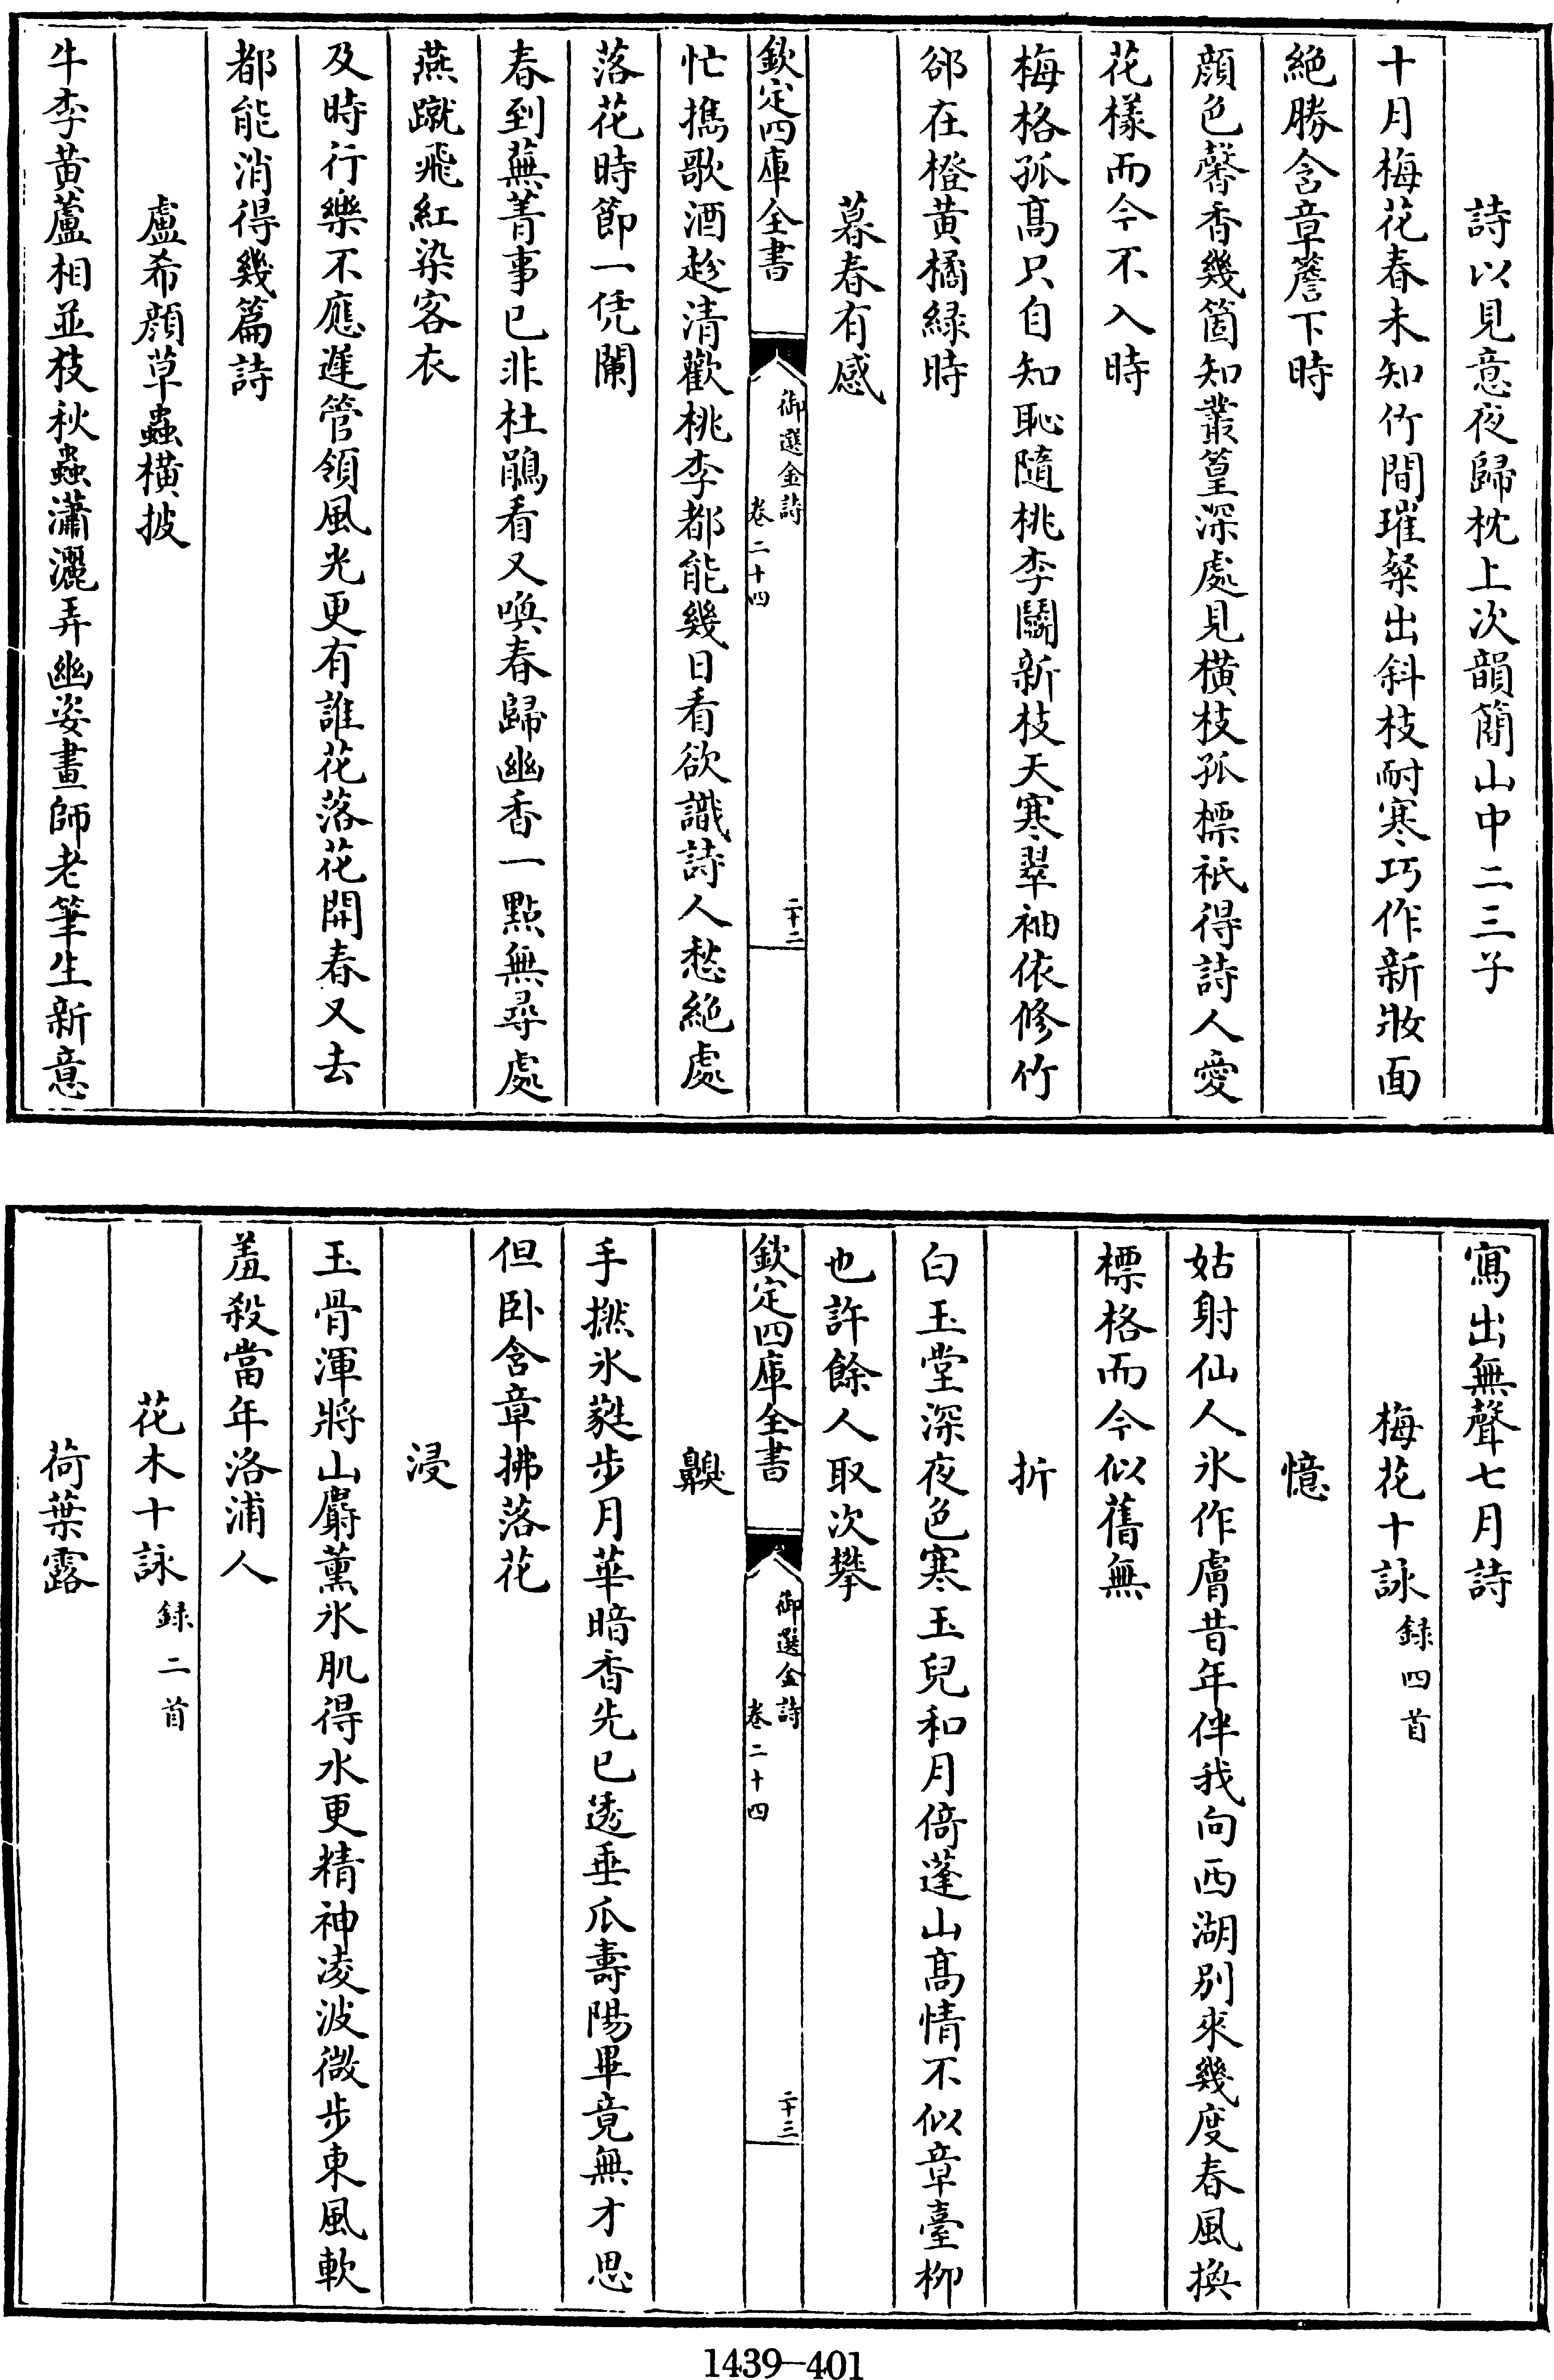 詩以見意夜歸枕上次韻簡山中二三子
十月梅花春未知竹間璀粲出斜枝耐寒巧作新妝面
絶勝含章簷下時
顔色馨香幾箇知叢篁深處見橫枝孤標祇得詩人愛
花樣而今不入時
梅格孤髙只自知恥隨桃李鬭新枝天寒翠袖依修竹
郤在橙黄橘緑時
暮春有感
欽定四庫全書
御選金詩
卷二十四
二十二
忙攜歌酒趁清歡桃李都能幾日看欲識詩人愁絶處
落花時節一凭闌
春到蕪菁事已非杜鵑看又喚春歸幽香一點無尋處
燕蹴飛紅染客衣
及時行樂不應遲管領風光更有誰花落花開春又去
都能消得幾篇詩
盧希顔草蟲橫披
牛李黄蘆相並枝秋蟲瀟灑弄幽姿畫師老筆生新意
寫出無聲七月詩
梅花十詠録四首
憶
姑射仙人氷作膚昔年伴我向西湖别來幾度春風換
標格而今似舊無
折
白玉堂深夜色寒玉兒和月倚蓬山髙情不似章臺柳
也許餘人取次攀
欽定四庫全書
御選金詩
卷二十四
二十三
齅
手撚氷蕤步月華暗香先已透垂瓜壽陽畢竟無才思
但卧含章拂落花
浸
玉骨渾將山麝薰氷肌得水更精神凌波微步東風軟
羞殺當年洛浦人
花木十詠録二首
荷葉露
1439-401